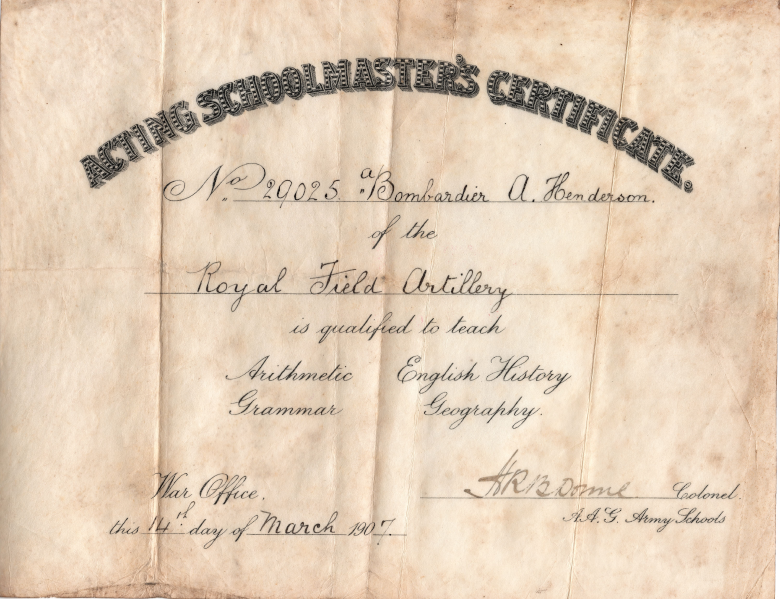 ACTING SCHOOLMASTER'S CERTIFICATE.
No. 29025 a/Bombardier A. Henderson.
of the
Royal Field Artillery
is qualified to teach
Arithmetic English History
Grammar Geography.
War Office,
this 14th day of March 1907.
Colonel.
A.A.G. Army Schools